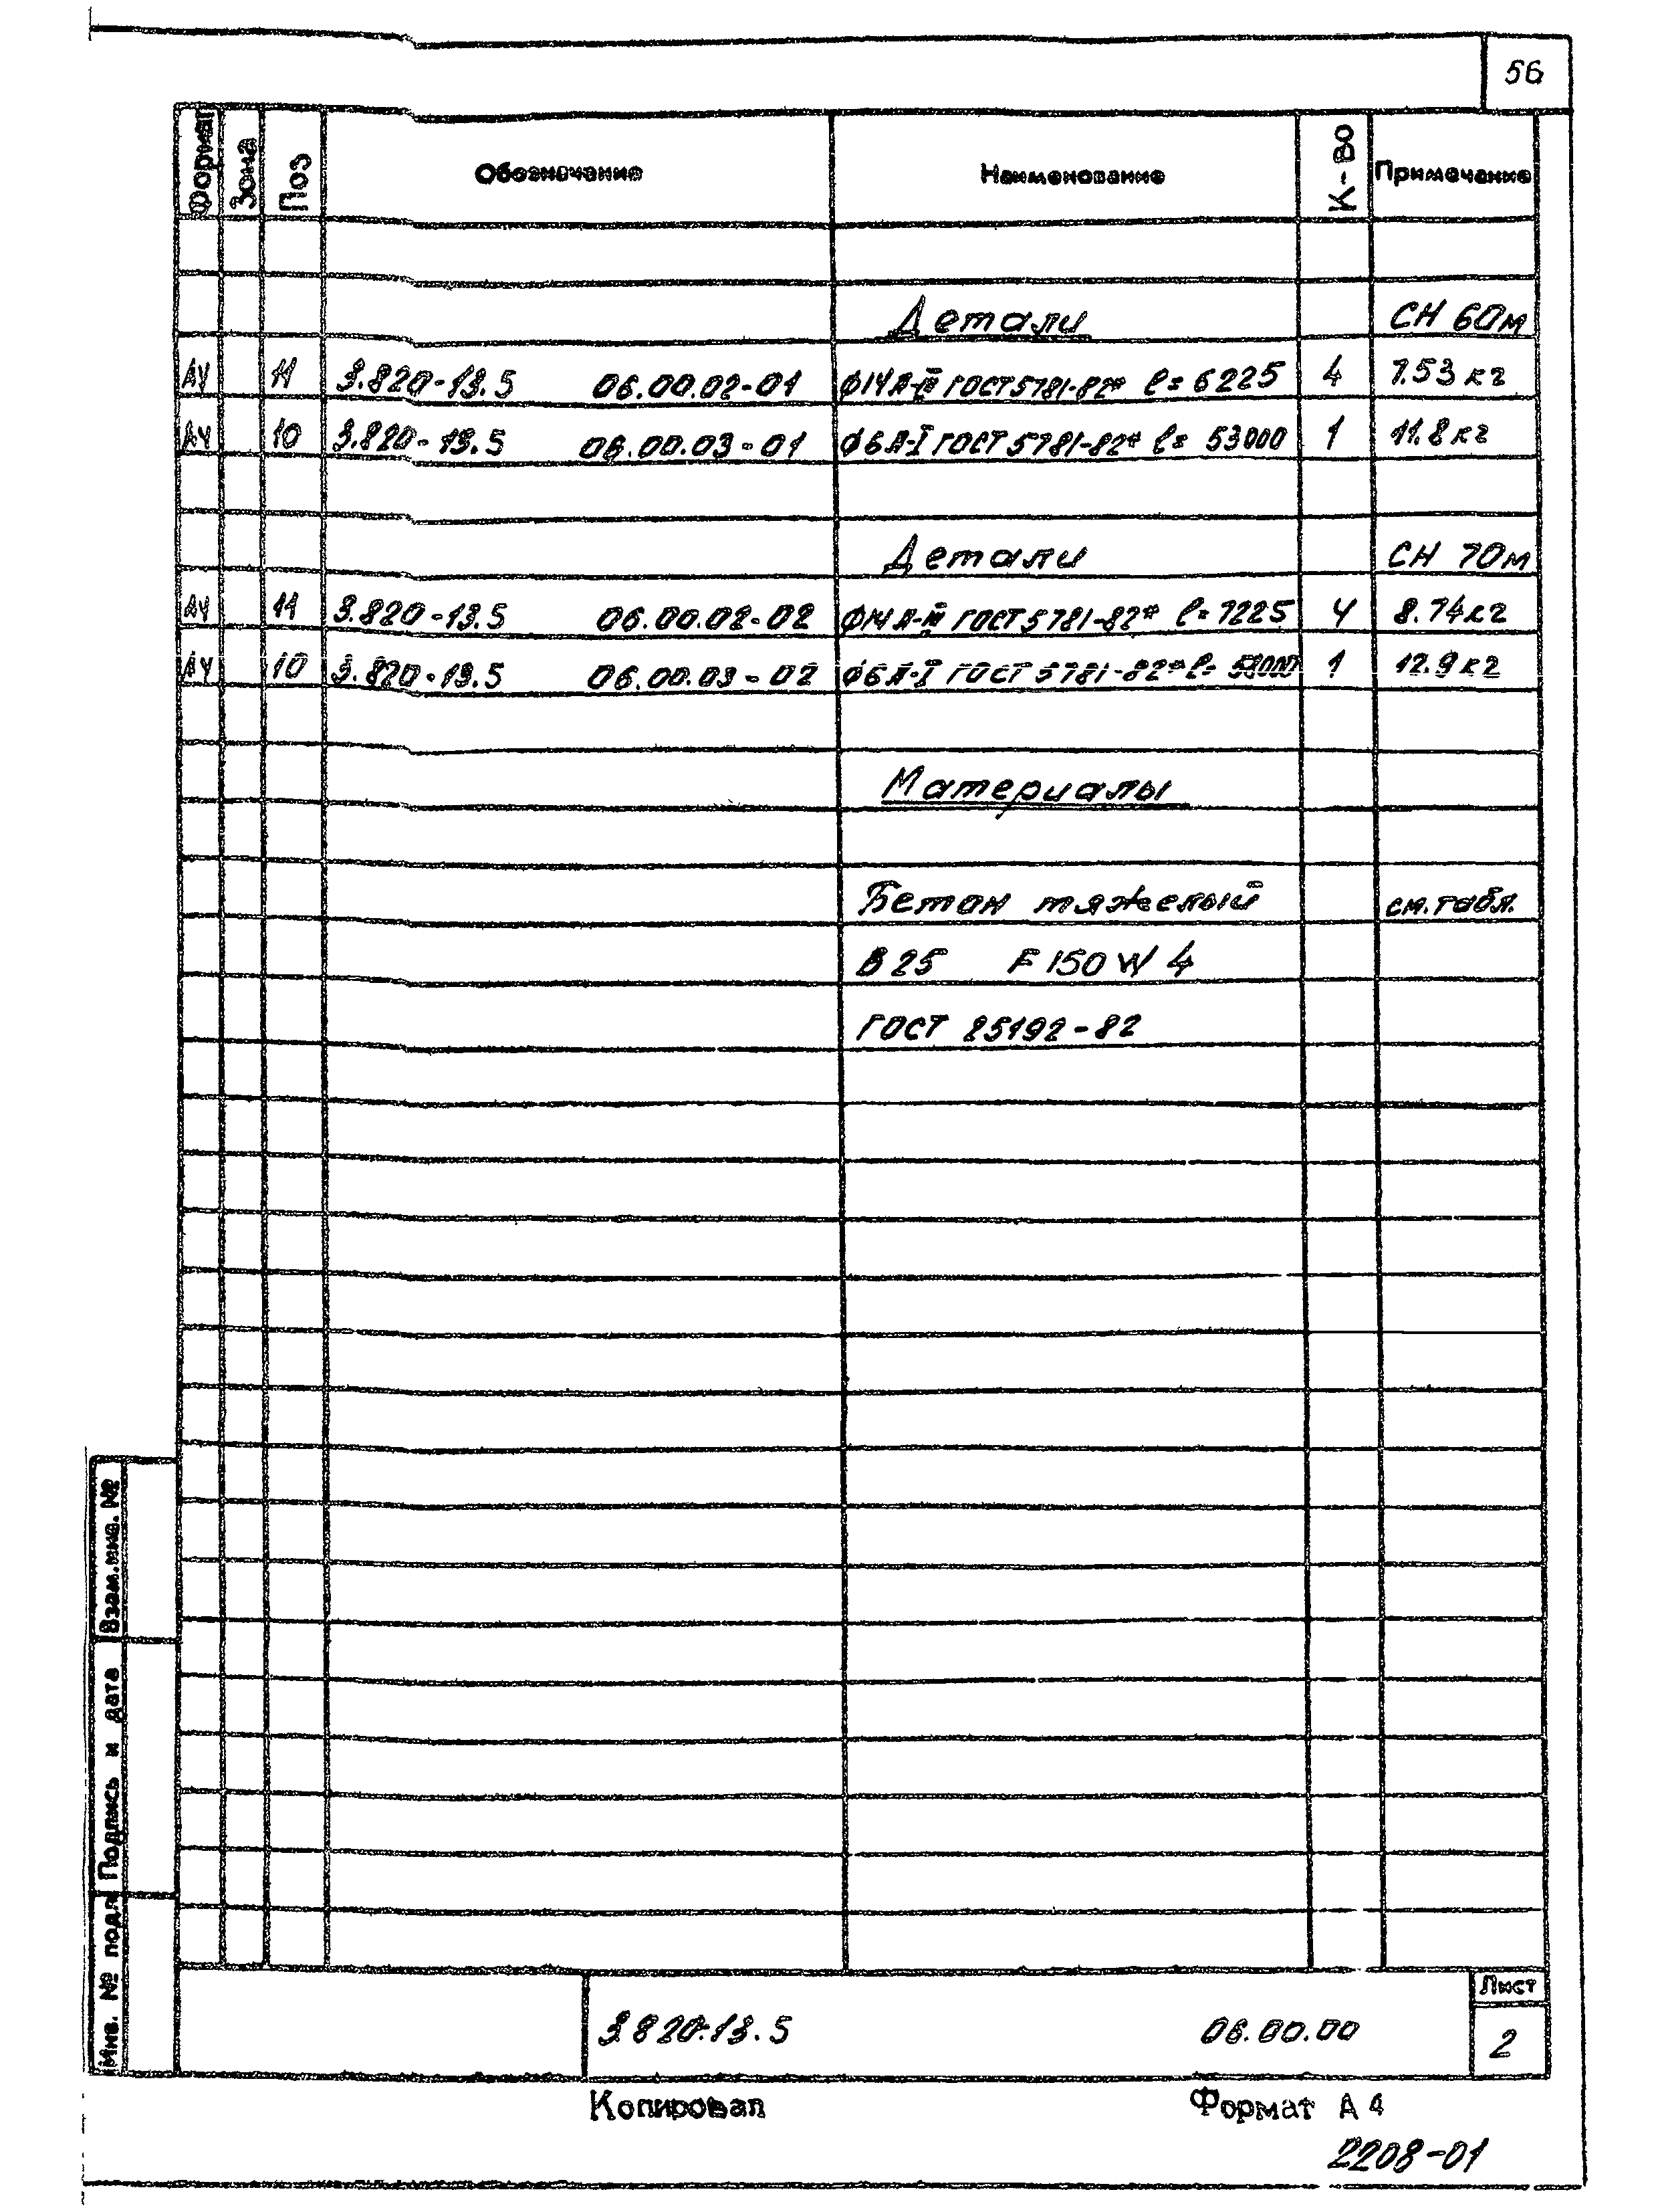 56
Формат Зона Поз Обозначение Наименование К-во Примечание
Детали СН 60м
А4 11 3.820-13.5 06.00.02-01 Ф14 А-III ГОСТ 5781-82* l= 6225 4 7.53 кг
А4 10 3.820-13.5 06.00.03-01 Ф6 А-I ГОСТ 5781-82* l= 53000 1 11.8 кг
Детали СН 70м
А4 11 3.820-13.5 06.00.02-02 Ф14 А-III ГОСТ 5781-82* l= 7225 4 8.74 кг
А4 10 3.820-13.5 06.00.03-02 Ф6 А-I ГОСТ 5781-82* l= 1 12.9 кг
Материалы
Бетон тяжелый см. табл.
В 25 F 150 W 4
ГОСТ 25192-82
Взам. инв. №
Подпись и дата
Инв. № подл
3.820-13.5 06.00.00
Лист
2
Копировал Формат А 4
2208-01